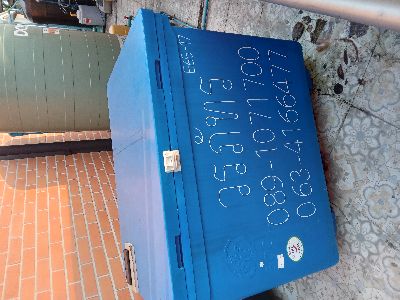 EES-17
วรภัทร
089-1071700
063-4166477